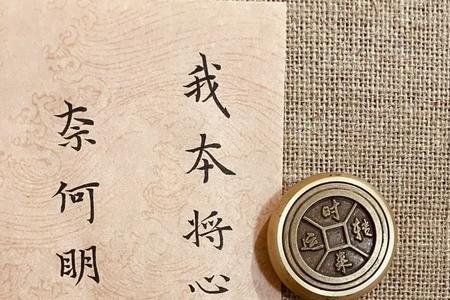 我本将心
奈何明
时来运转